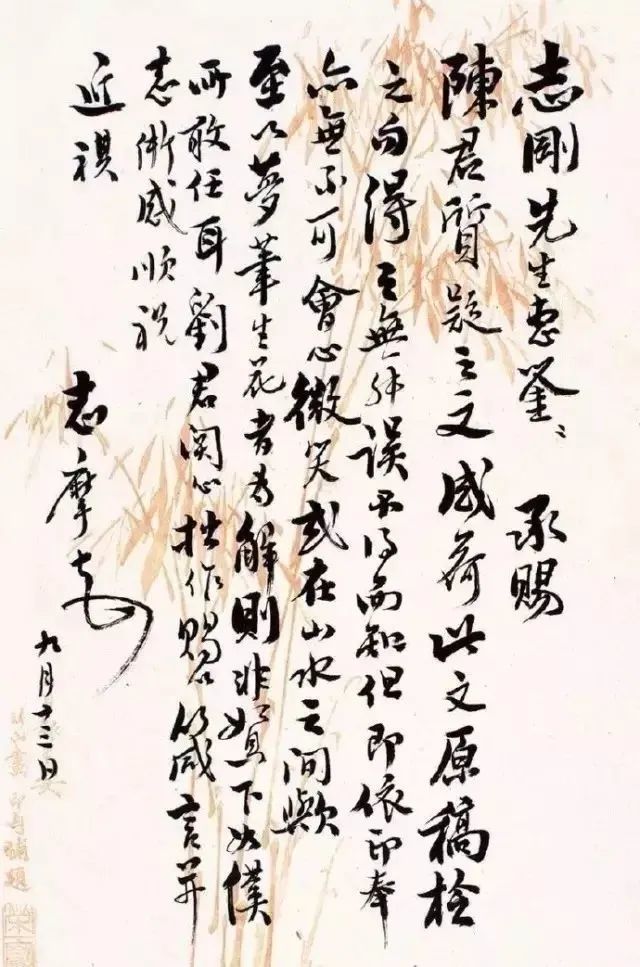 志剛先生惠鑒：承賜
陳君質疑之文感荷此文原稿檢
之而得之無一外誤不得而知但即依印奉
亦無不可會心微笑或在山水之間歟
至以夢筆生花者為解則非嬪下如僕
所敢任耳劉君関心拙作賜以箴言并
志慚感順祝
近祺
志摩
九月十三日